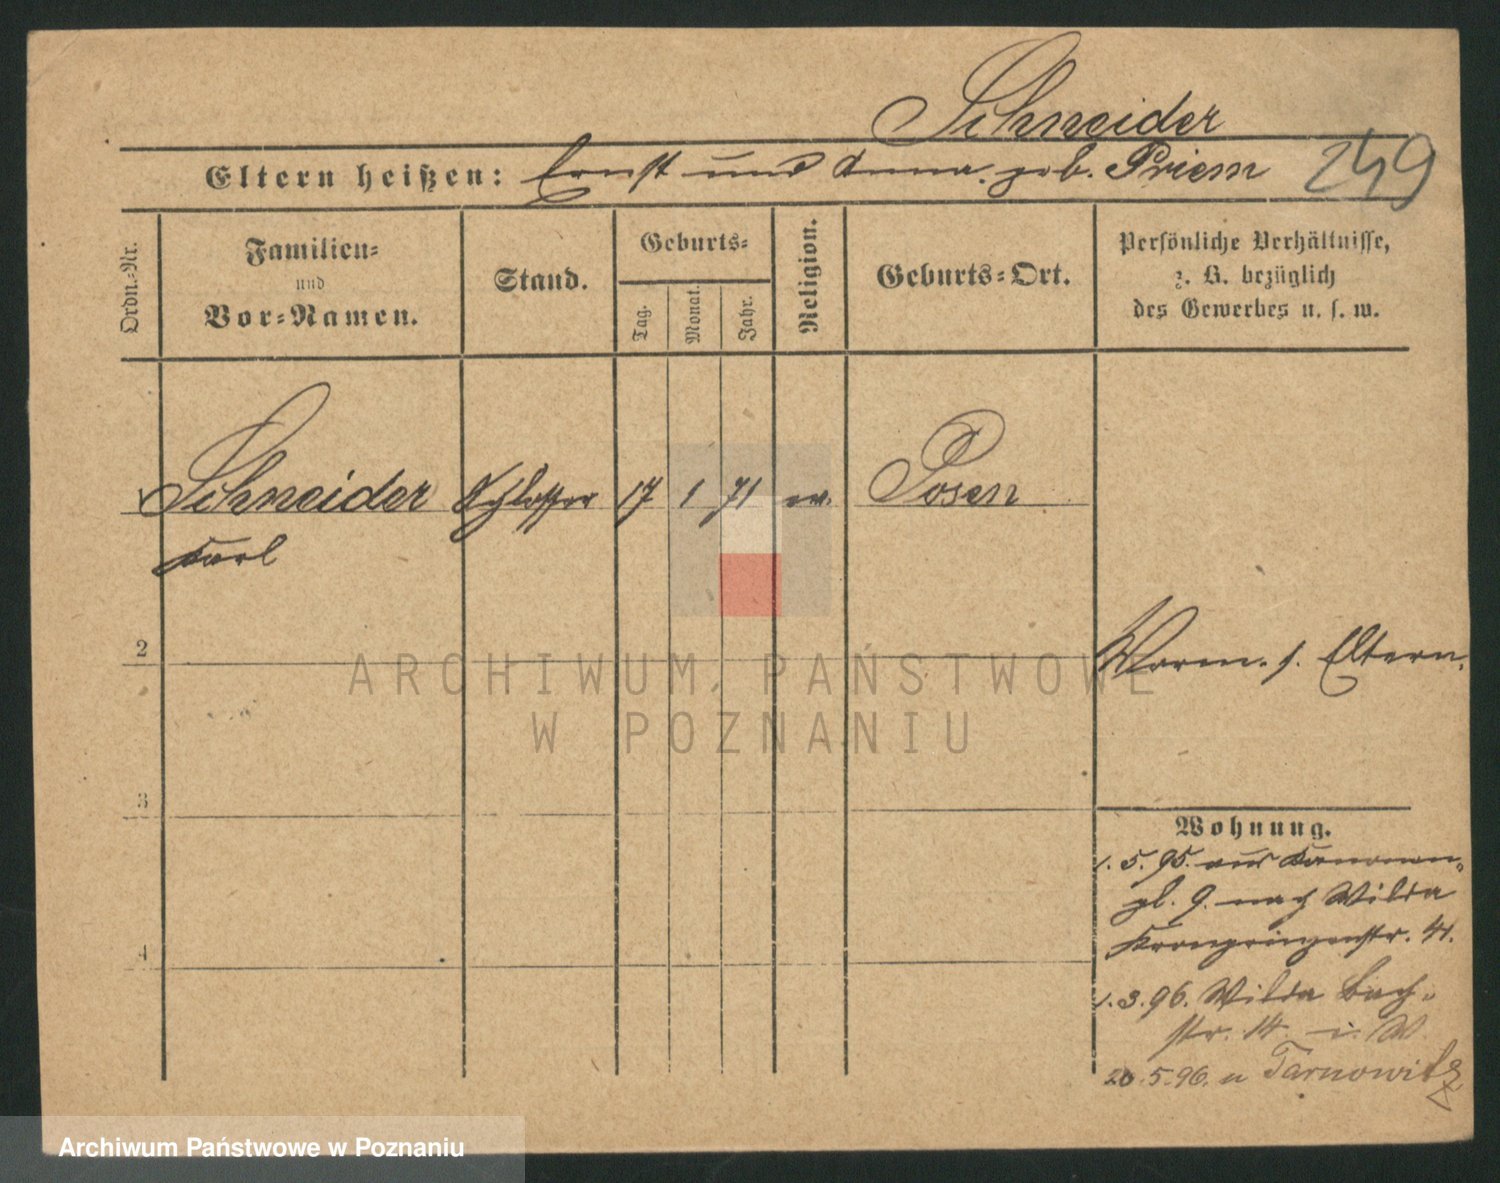 Schneider
Eltern heißen: Ernst und Anna geb. Priem 249
Ordn.-Nr.
Familien-
und
Vor-Namen.
Stand.
Geburts-
Tag.
Monat.
Jahr.
Religion.
Geburts-Ort.
Persönliche Verhältnisse,
z. B. bezüglich
des Gewerbes u. s. w.
1 Schneider Schlosser 17 1 71 ev. Posen
Karl
2
Worm. s. Eltern.
3
Wohnung.
1. 5. 95. aus Kanonen-
pl. 9. nach Wilda
Kronprinzenstr. 41.
4
1. 3. 96. Wilda Bach-
str. 14. i. W.
20. 5. 96. n Tarnowitz
ARCHIWUM PAŃSTWOWE
W POZNANIU
Archiwum Państwowe w Poznaniu